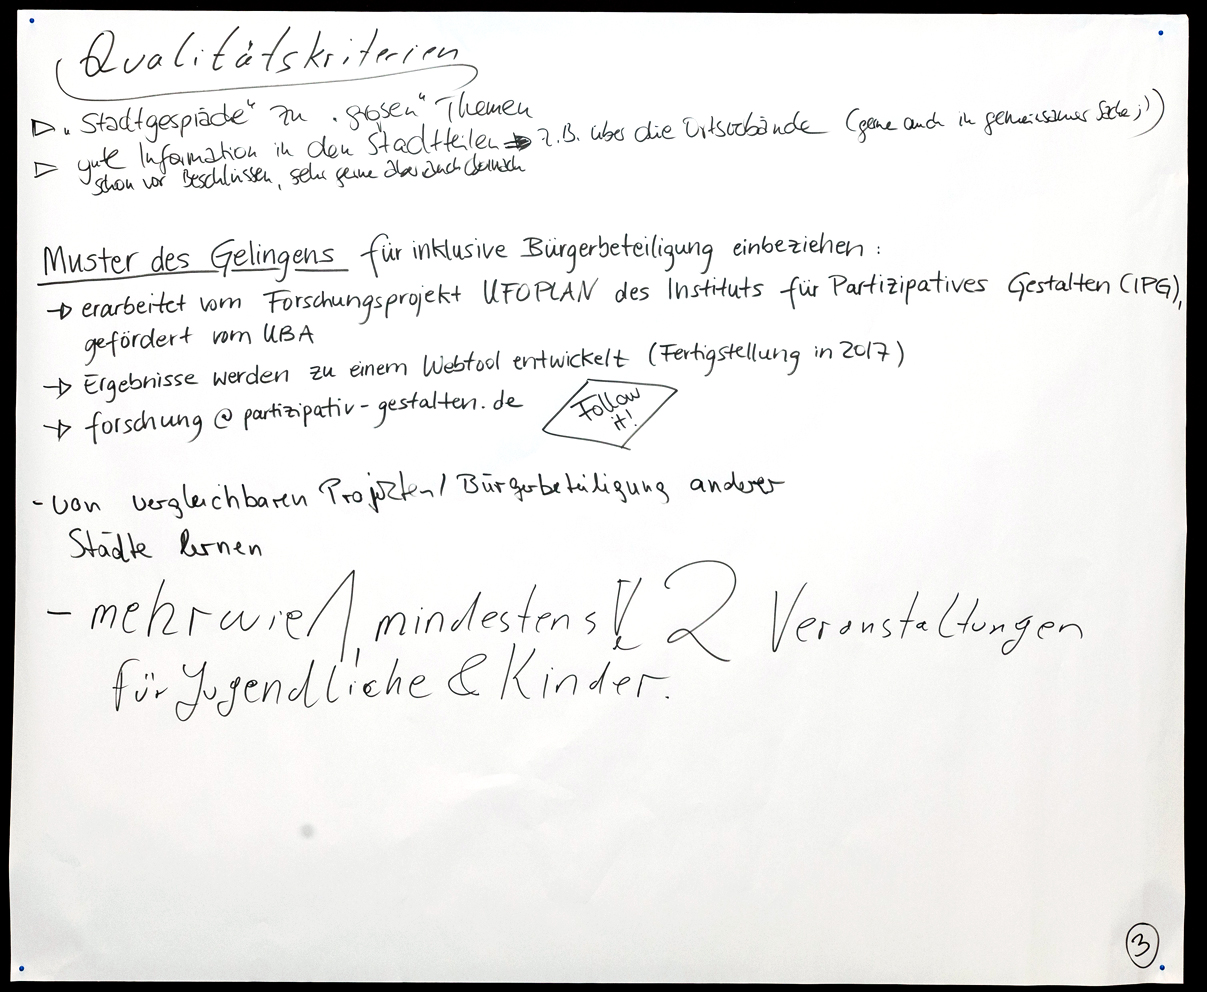 Qualitätskriterien
▷ „Stadtgespräche" zu „großen" Themen
▷ gute Information in den Stadtteilen → z.B. über die Ortsverbände (gerne auch in gemeinsamer Sache ;))
schon vor Beschlüssen, sehr gerne aber auch danach
Muster des Gelingens für inklusive Bürgerbeteiligung einbeziehen:
→ erarbeitet vom Forschungsprojekt UFOPLAN des Instituts für Partizipatives Gestalten (IPG),
gefördert vom UBA
→ Ergebnisse werden zu einem Webtool entwickelt (Fertigstellung in 2017)
→ forschung@partizipativ-gestalten.de
Follow
it!
- von vergleichbaren Projekten/Bürgerbeteiligung anderer
Städte lernen
- mehr wie 1, mindestens! 2 Veranstaltungen
für Jugendliche & Kinder.
3